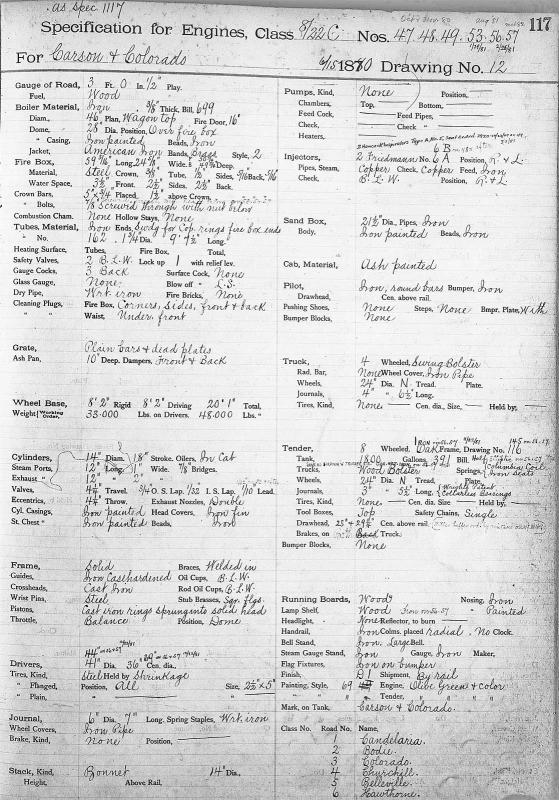 as spec 1117
117
Specification for Engines, Class 8/22 C Nos. 47.48.49.53.56.57
For Carson & Colorado 6/15 1880 Drawing No. 12
Gauge of Road, 3 Ft. 0 In. 1/2" Play.
Fuel, Wood
Boiler Material, Iron 3/8 Thick, Bill, 699
Diam., 46 Plan, Wagon top Fire Door, 16"
Dome, 28 Dia. Position, Over fire box
" Casing, Iron painted Beads, Iron
Jacket, American Iron Bands, Brass Style, 2
Fire Box, 59 7/16" Long, 24 7/8" Wide. Deep.
Material, Steel Crown, 3/8 Tube, 1/2" Sides, 5/16 Back, 5/16
Water Space, 3 1/2" Front. 2 1/2" Sides. 2 1/2" Back.
Crown Bars, 5 x 3/4 Placed, 1 1/2" above Crown.
" Bolts, 7/8 Screwed through with nut below
Combustion Cham. None Hollow Stays, None
Tubes, Material, Iron Ends, Swdg for Cop. rings fire box ends
" No. 162. 1 3/4" Dia. 9' 7 1/2" Long.
Heating Surface, Tubes, Fire Box, Total,
Safety Valves, 2 B.L.W. Lock up 1 with relief lev.
Gauge Cocks, 3 Back Surface Cock, None
Glass Gauge, None. Blow off " L.S.
Dry Pipe, Wrt. iron Fire Bricks, None
Cleaning Plugs, Fire Box, Corners, Sides, front & back
" " Waist, Under, front
Grate, Plain bars & dead plates
Ash Pan, 10" Deep, Dampers, Front & Back
Wheel Base, 8' 2" Rigid 8' 2" Driving 20' 1" Total,
Weight (Working Order, 33.000 Lbs. on Drivers. 48.000 Lbs. "
Cylinders, 14" Diam. 18" Stroke. Oilers, In Cat
Steam Ports, 12" Long. 1" Wide. 7/8" Bridges.
Exhaust " 12" " 2" "
Valves, 4 3/4" Travel. 3/4 O. S. Lap. 1/32 I. S. Lap. 1/10 Lead.
Eccentrics, 4 3/4" Throw. Exhaust Nozzles, Double
Cyl. Casings, Iron painted Head Covers, Iron fin
St. Chest " Iron painted Beads, Iron
Frame, Solid Braces, Welded in
Guides, Iron Casehardened Oil Cups, B.L.W.
Crossheads, Cast Iron Rod Oil Cups, B.L.W.
Wrist Pins, Steel Stub Brasses,
Pistons, Cast iron rings sprung into solid head
Throttle, Balance Position, Dome
Drivers, 41" Dia. 36" Cen. dia.,
Tires, Kind, Steel Held by Shrinkage
" Flanged, Position, All Size, 2 1/2" x 5"
" Plain, " "
Journal, 6" Dia. 7" Long. Spring Staples, Wrt. iron
Wheel Covers, Iron Pipe
Brake, Kind, None Position,
Stack, Kind, Bonnet 14" Dia.,
Height, Above Rail,
Pumps, Kind, None Position,
Chambers, Top, Bottom,
Feed Cock, Feed Pipes,
Check, " Check,
Heaters,
Injectors, 2 Friedmann No. 6 A Position, R & L.
Pipes, Steam, Copper Check, Copper Feed, Iron
Check, B.L.W. Position, R. & L.
Sand Box, 21 1/2" Dia., Pipes, Iron
Body, Iron painted Beads, Iron
Cab, Material, Ash painted
Pilot, Iron, round bars Bumper, Iron
Drawhead, Cen. above rail.
Pushing Shoes, None Steps, None Bmpr. Plate, With
Bumper Blocks, None
Truck, 4 Wheeled, Swing Bolster
Rad. Bar, None Wheel Cover, Iron Pipe
Wheels, 24" Dia. N Tread. Plate.
Journals, 4" " 6 1/2" Long.
Tires, Kind, None Cen. dia., Size, Held by,
Tender, 8 Wheeled, Oak Frame, Drawing No. 116
Tank, 1800 Gallons, 391 Bill.
Trucks, Wood Bolster Springs,
Wheels, 24" Dia. N Tread, Plate.
Journals, 3" " 5 1/2" Long,
Tires, Kind, None Cen. dia. Size Held by
Tool Boxes, Top Safety Chains, Single
Drawhead, 25" & 29 1/2" Cen. above rail.
Brakes, on Back Truck.
Bumper Blocks, None
Running Boards, Wood Nosing, Iron
Lamp Shelf, Wood Iron on 56-57 " Painted
Headlight, None Reflector, to burn
Handrail, Iron Colms. placed radial. No Clock.
Bell Stand, Iron, Large Bell.
Steam Gauge Stand, Iron Gauge, Iron Maker,
Flag Fixtures, Iron on bumper
Finish, B 1 Shipment, By rail
Painting, Style, 69 Engine, Olive Green & color
" " Tender, " "
Mark, on Tank, Carson & Colorado.
Class No. Road No. Name,
1 Candelaria.
2 Bodie.
3 Colorado.
4 Churchill.
5 Belleville.
6 Hawthorne.